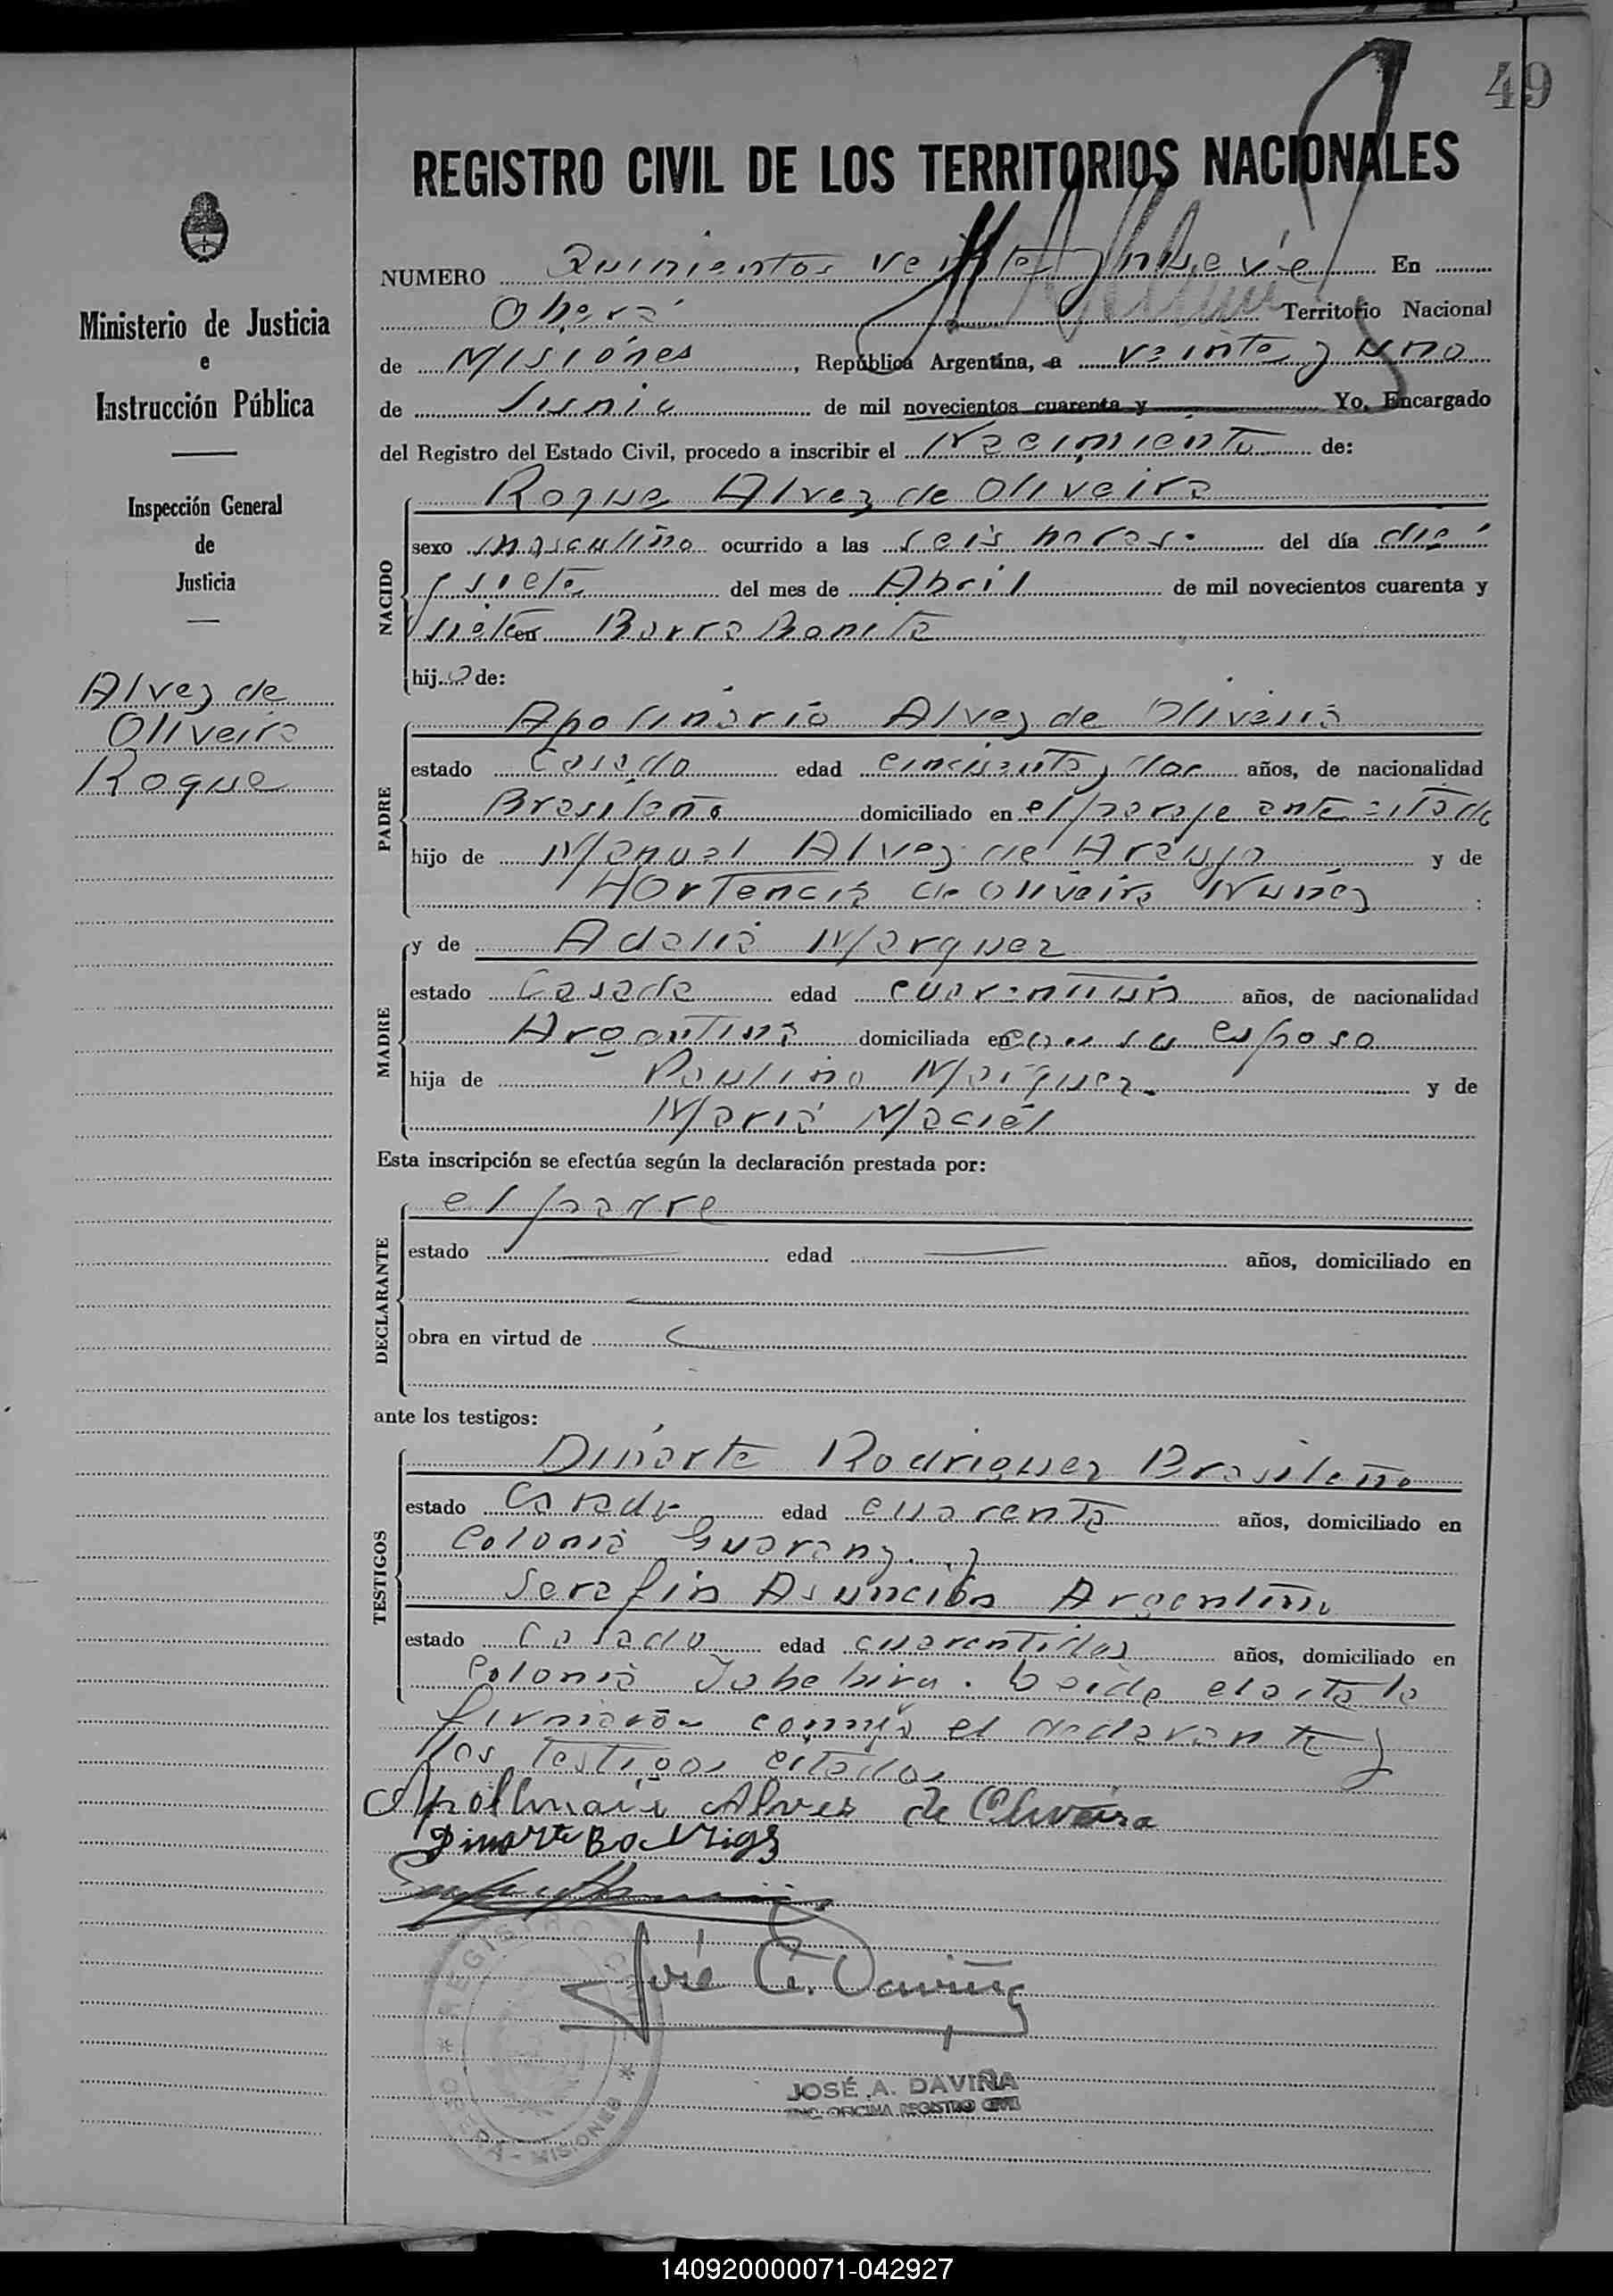 49
REGISTRO CIVIL DE LOS TERRITORIOS NACIONALES
NUMERO Quinientos veinte y nueve En
Oberá Territorio Nacional
de Misiónes, República Argentina, a veinte y uno
de Junio de mil novecientos cuarenta y Yo, Encargado
del Registro del Estado Civil, procedo a inscribir el Nacimiento de:
Ministerio de Justicia
e
Instrucción Pública
Inspección General
de
Justicia
Alvez de
Oliveira
Roque
NACIDO
Roque Alvez de Oliveira
sexo masculino ocurrido a las seis horas. del día dié
y siete del mes de Abril de mil novecientos cuarenta y
siete en Barra Bonita
hijo de:
PADRE
Apolinário Alvez de Oliveira
estado Casado edad cincuenta y dos años, de nacionalidad
Brasileño domiciliado en el paraje ante citado
hijo de Manuel Alvez de Araujo y de
Hortencia de Oliveira Nuñez
MADRE
y de Adelia Marquez
estado Casada edad cuarentiun años, de nacionalidad
Argentina domiciliada en con su esposo
hija de Paulino Marquez y de
Maria Maciél
Esta inscripción se efectúa según la declaración prestada por:
DECLARANTE
el padre
estado edad años, domiciliado en
obra en virtud de
ante los testigos:
TESTIGOS
Dinarte Rodriguez Brasileño
estado Casado edad cuarenta años, domiciliado en
Colonia Guarany. y
Serafin Asunción Argentino
estado Casado edad cuarentidos años, domiciliado en
Colonia Yabebiry. Leida el acta la
firmarón conmigo el declarante y
los testigos citados
Apollinari Alves de Oliveira
Dinarte Rodrigs
José A. Daviña
REGISTRO CIVIL
MISIONES
JOSÉ A. DAVIÑA
ENC. OFICINA REGISTRO CIVIL
140920000071-042927